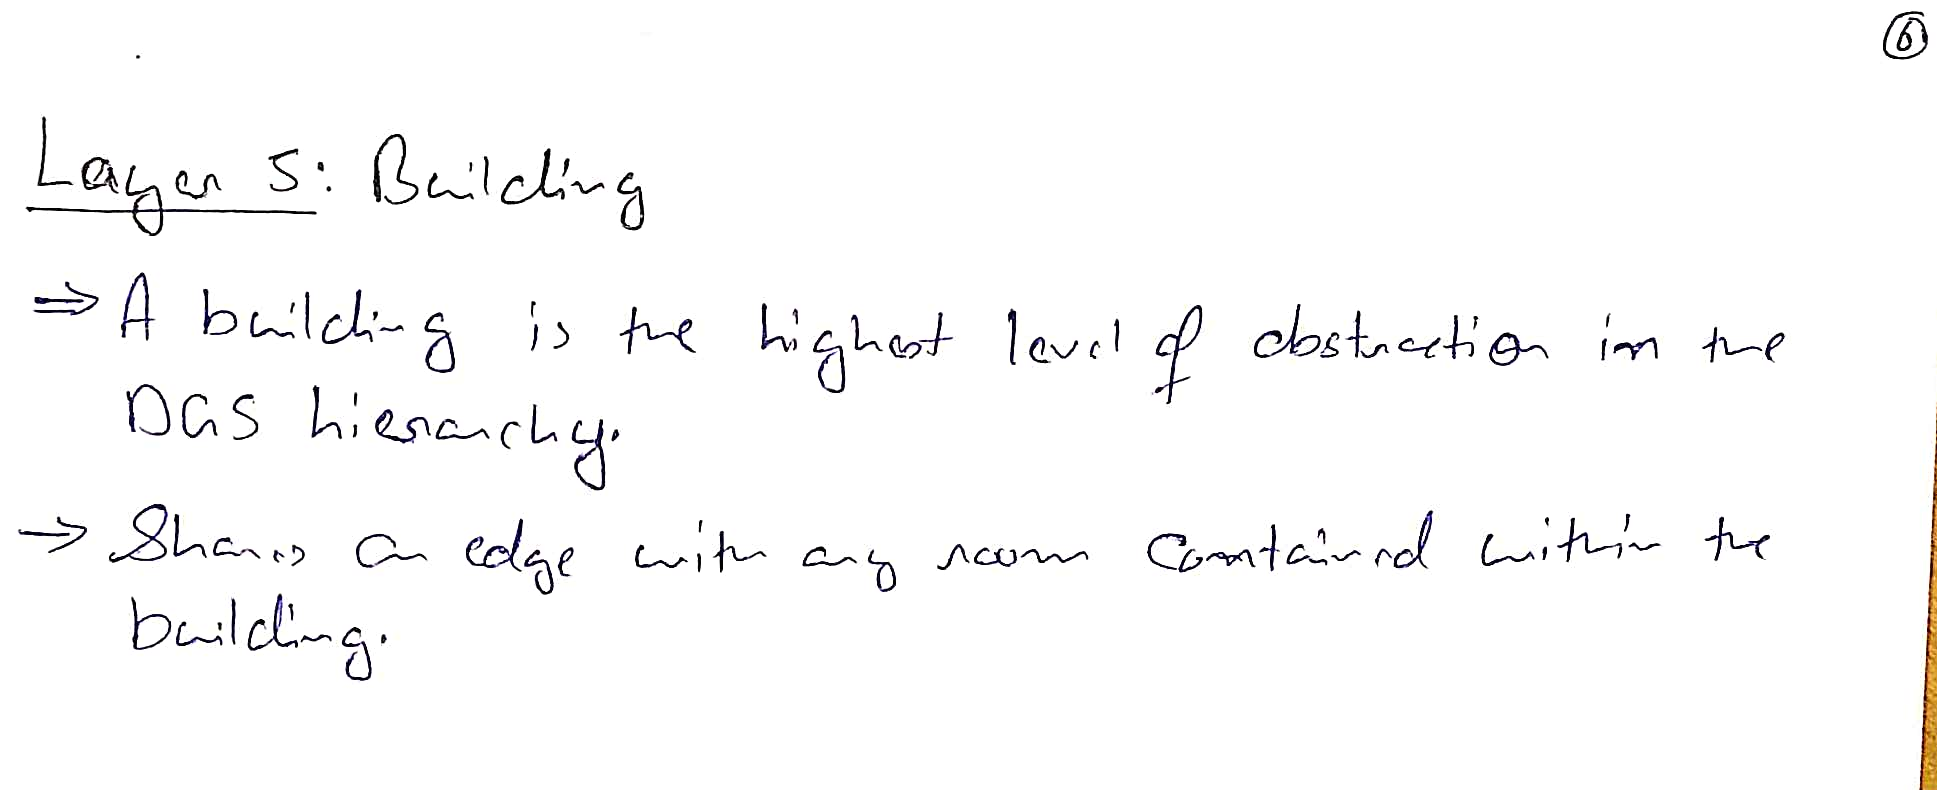 6
Layer 5: Building
⇒ A building is the highest level of abstraction in the
DGS hierarchy.
→ Shares an edge with any room contained within the
building.